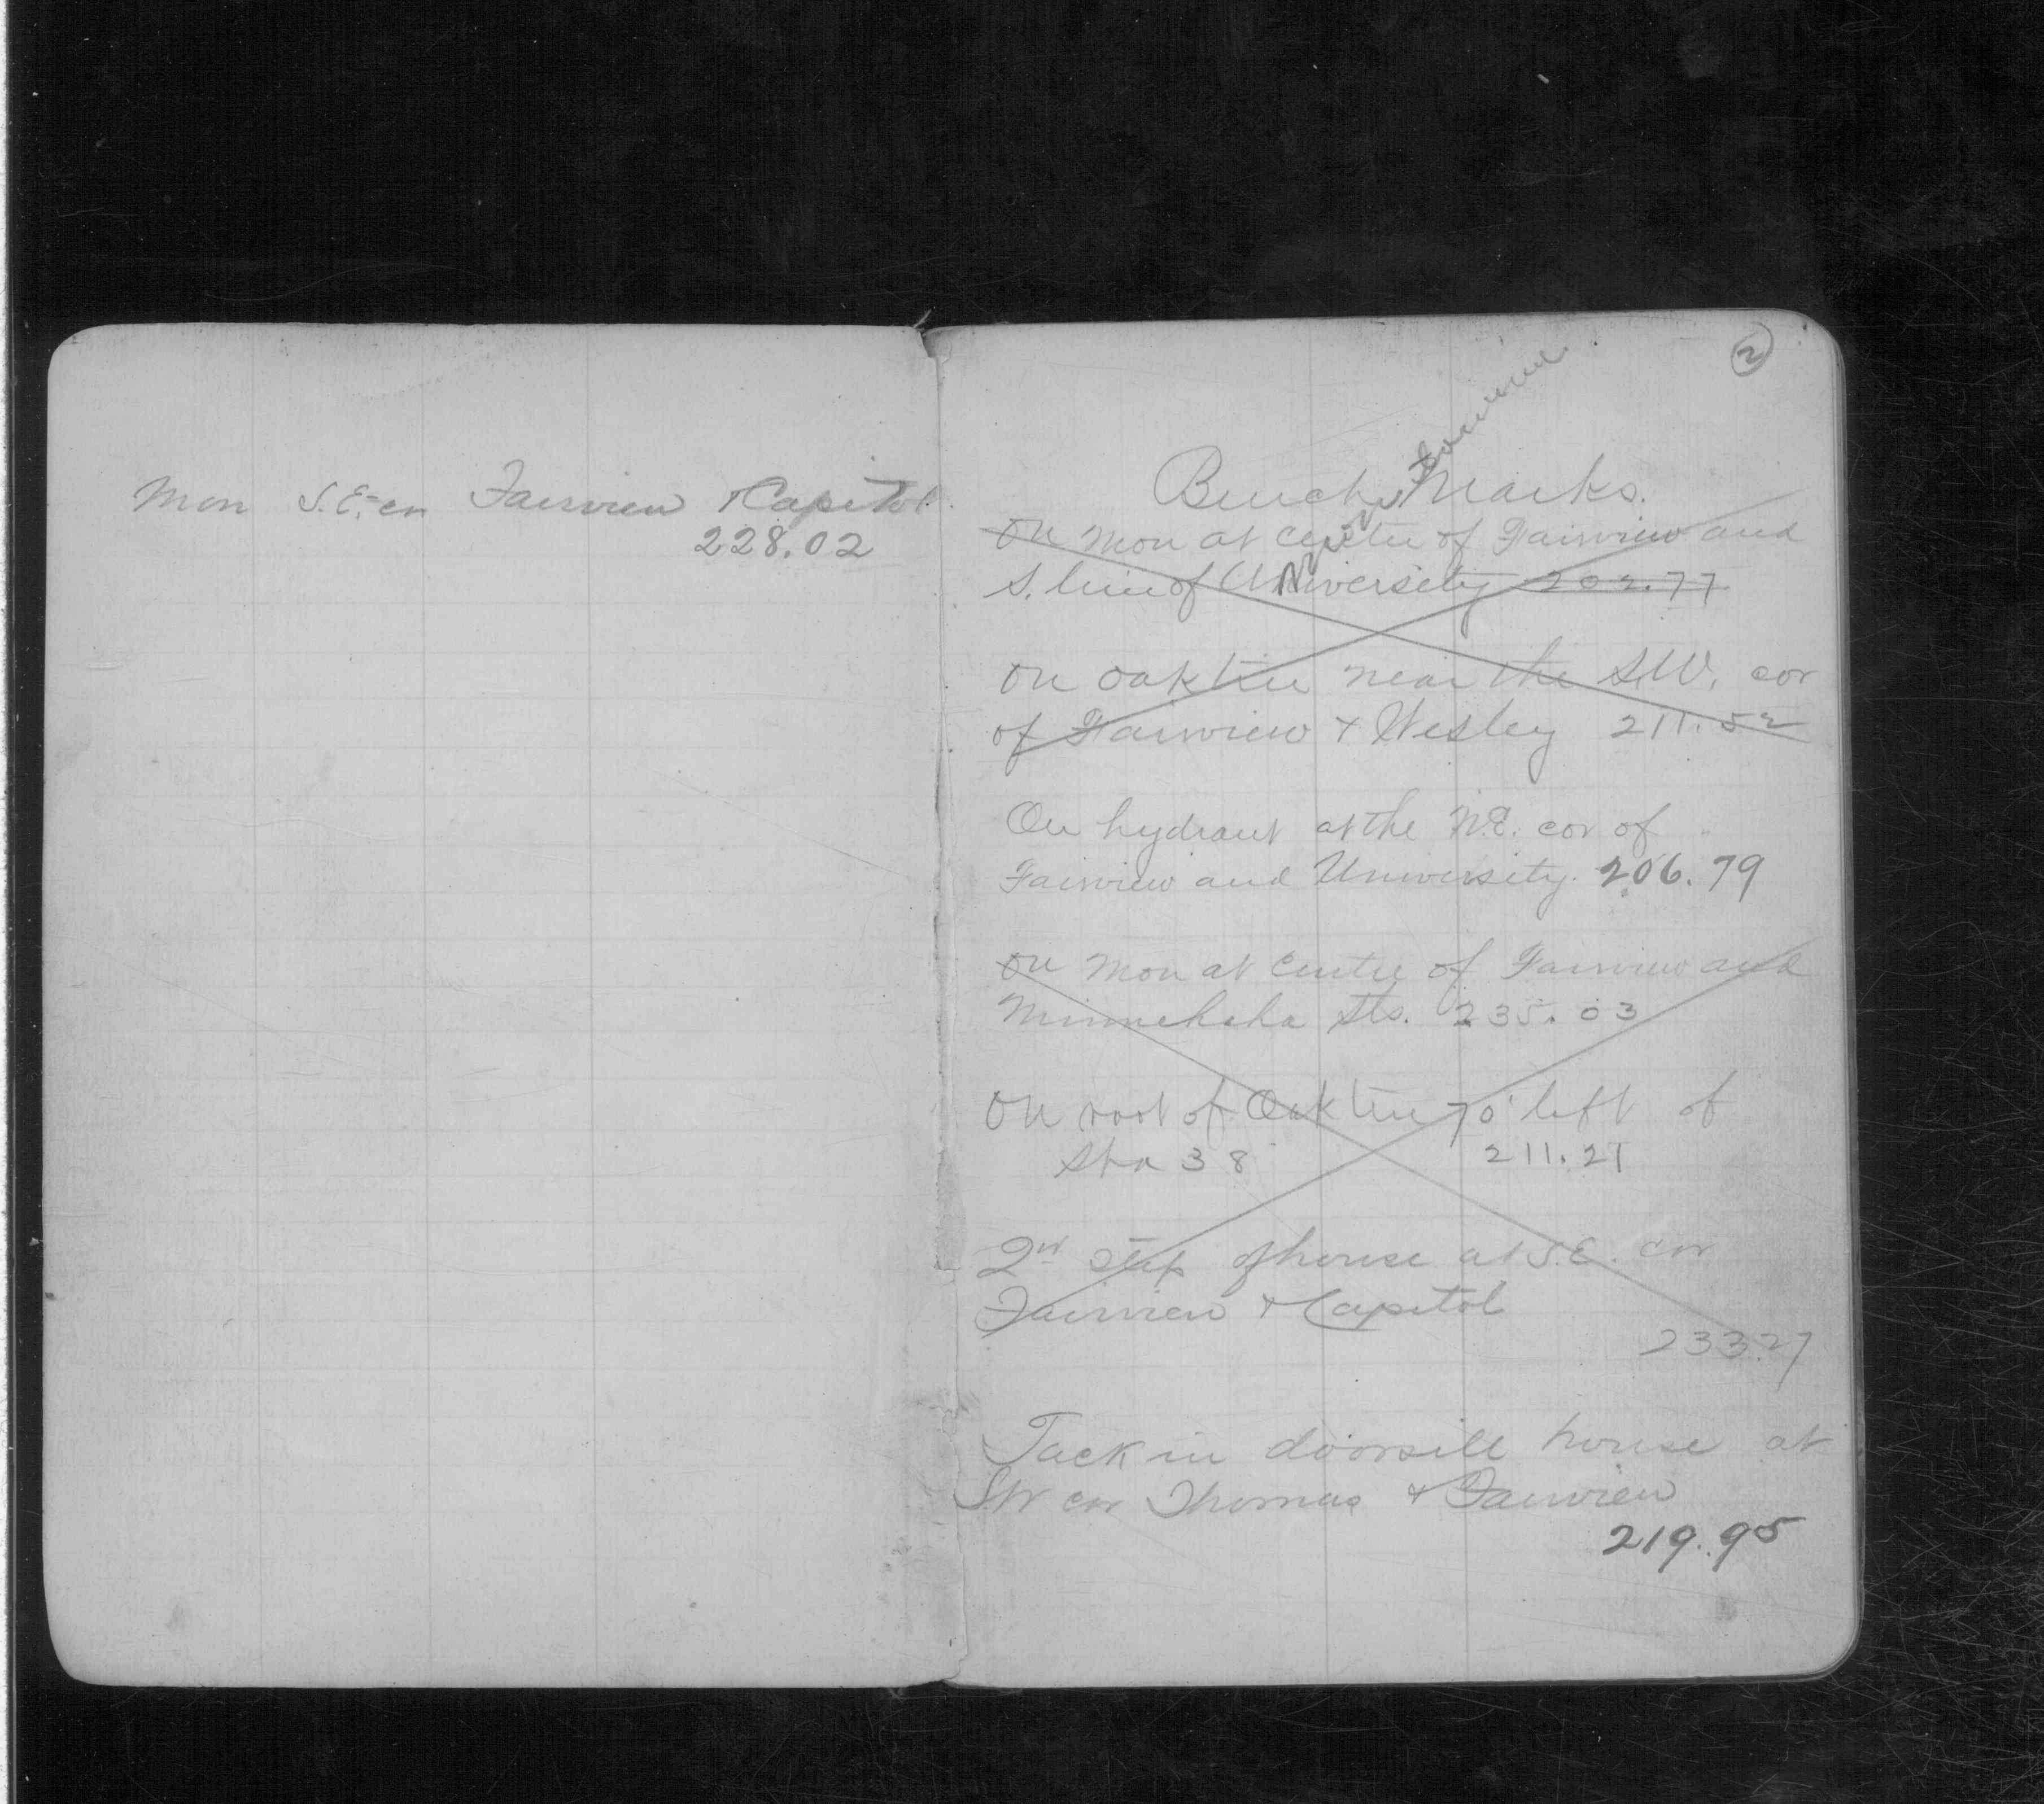 Mon S.E. cor Fairview & Capitol.
228.02
2
Bench Marks.
On Mon at centre of Fairview and
S. line of University 202.77
On oak tree near the S.W. cor
of Fairview & Wesley 211.52
On hydrant at the N.E. cor of
Fairview and University. 206.79
On Mon at Centre of Fairview and
Minnehaha Sts. 235.03
On root of Oak tree 70' left of
Sta 38 211.21
2nd step of house at S.E. cor
Fairview & Capitol
233.27
Tack in doorsill house at
SW cor Thomas & Fairview
219.95